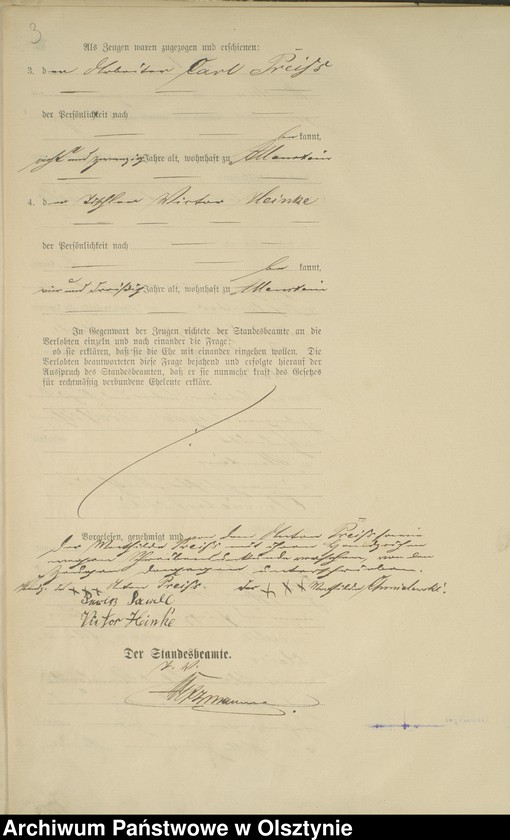 3
Als Zeugen waren zugezogen und erschienen:
3. der Arbeiter Carl Preiss
der Persönlichkeit nach
be kannt,
acht und zwanzig Jahre alt, wohnhaft zu Allenstein
4. der Victor Heinke
der Persönlichkeit nach
be kannt,
vier und dreißig Jahre alt, wohnhaft zu Allenstein
In Gegenwart der Zeugen richtete der Standesbeamte an die
Verlobten einzeln und nach einander die Frage:
ob sie erklären, daß sie die Ehe mit einander eingehen wollen. Die
Verlobten beantworteten diese Frage bejahend und erfolgte hierauf der
Ausspruch des Standesbeamten, daß er sie nunmehr kraft des Gesetzes
für rechtmäßig verbundene Eheleute erkläre.
Vorgelesen, genehmigt und von dem Preiss sowie
der Mathilde Preiss mit ihren Handzeichen
wegen Schreibensunkunde versehen von den
Zeugen dagegen unterschrieben.
Handz. des +++ Preiss. der +++ Mathilde Chmielewski.
Victor Heinke
Der Standesbeamte.
Archiwum Państwowe w Olsztynie